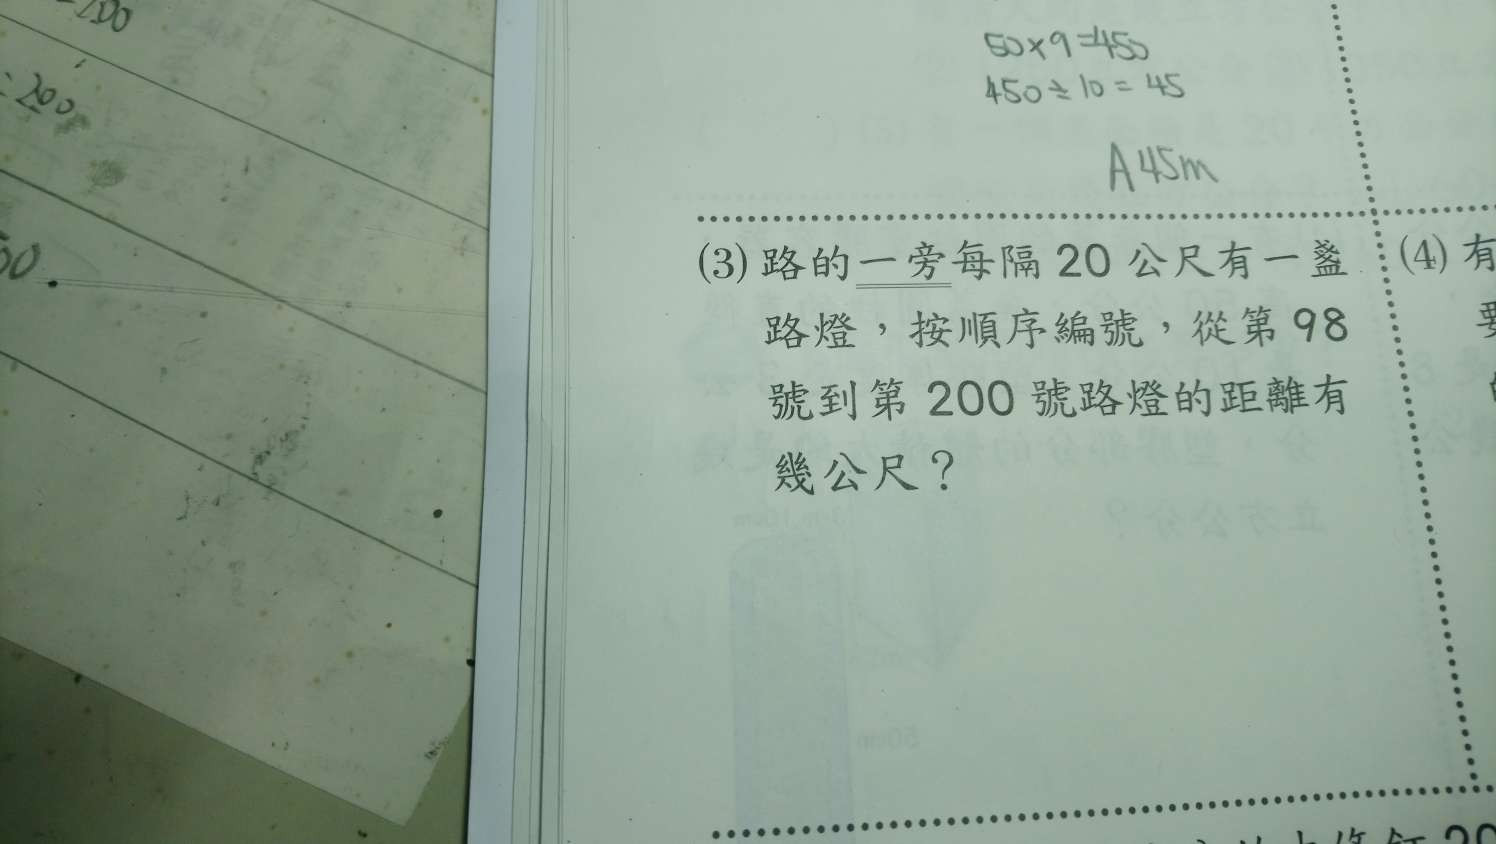 200
200
50
50×9=450
450÷10=45
A 45m
(3) 路的一旁每隔 20 公尺有一盞
路燈，按順序編號，從第 98
號到第 200 號路燈的距離有
幾公尺？
(4) 有
要